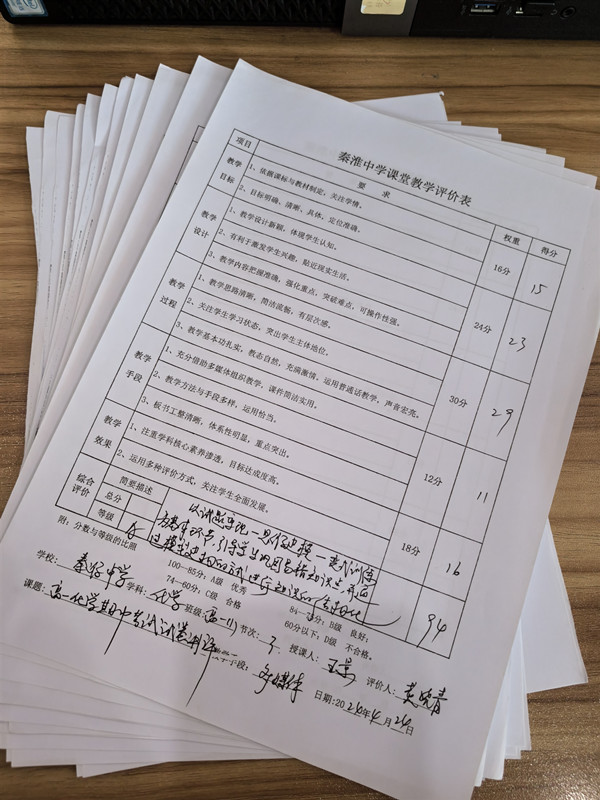 秦淮中学课堂教学评价表
项目 要 求 权重 得分
教学目标 1、依据课标与教材制定，关注学情。 16分 15
2、目标明确、清晰，具体，定位准确。
教学设计 1、教学设计新颖，体现学生认知。 24分 23
2、有利于激发学生兴趣，贴近现实生活。
3、教学内容把握准确，强化重点，突破难点，可操作性强。
教学过程 1、教学思路清晰，简洁流畅，有层次感。 30分 29
2、关注学生学习状态，突出学生主体地位。
3、教学基本功扎实，教态自然，充满激情，运用普通话教学，声音宏亮。
教学手段 1、充分借助多媒体组织教学，课件简洁实用。 12分 11
2、教学方法与手段多样，运用恰当。
3、板书工整清晰，体系性明显，重点突出。
教学效果 1、注重学科核心素养渗透，目标达成度高。 18分 16
2、运用多种评价方式，关注学生全面发展。
综合评价 简要描述
总分 94
等级 A
附：分数与等级的比照 100—85分：A级 优秀 84—75分：B级 良好；
74—60分：C级 合格 60分以下：D级 不合格。
学校： 秦淮中学 学科： 化学 班级： 节次： 3 授课人： 评价人：
课题： 高一化学期中考试试卷讲评 手段： 多媒体 日期:2024年4月26日